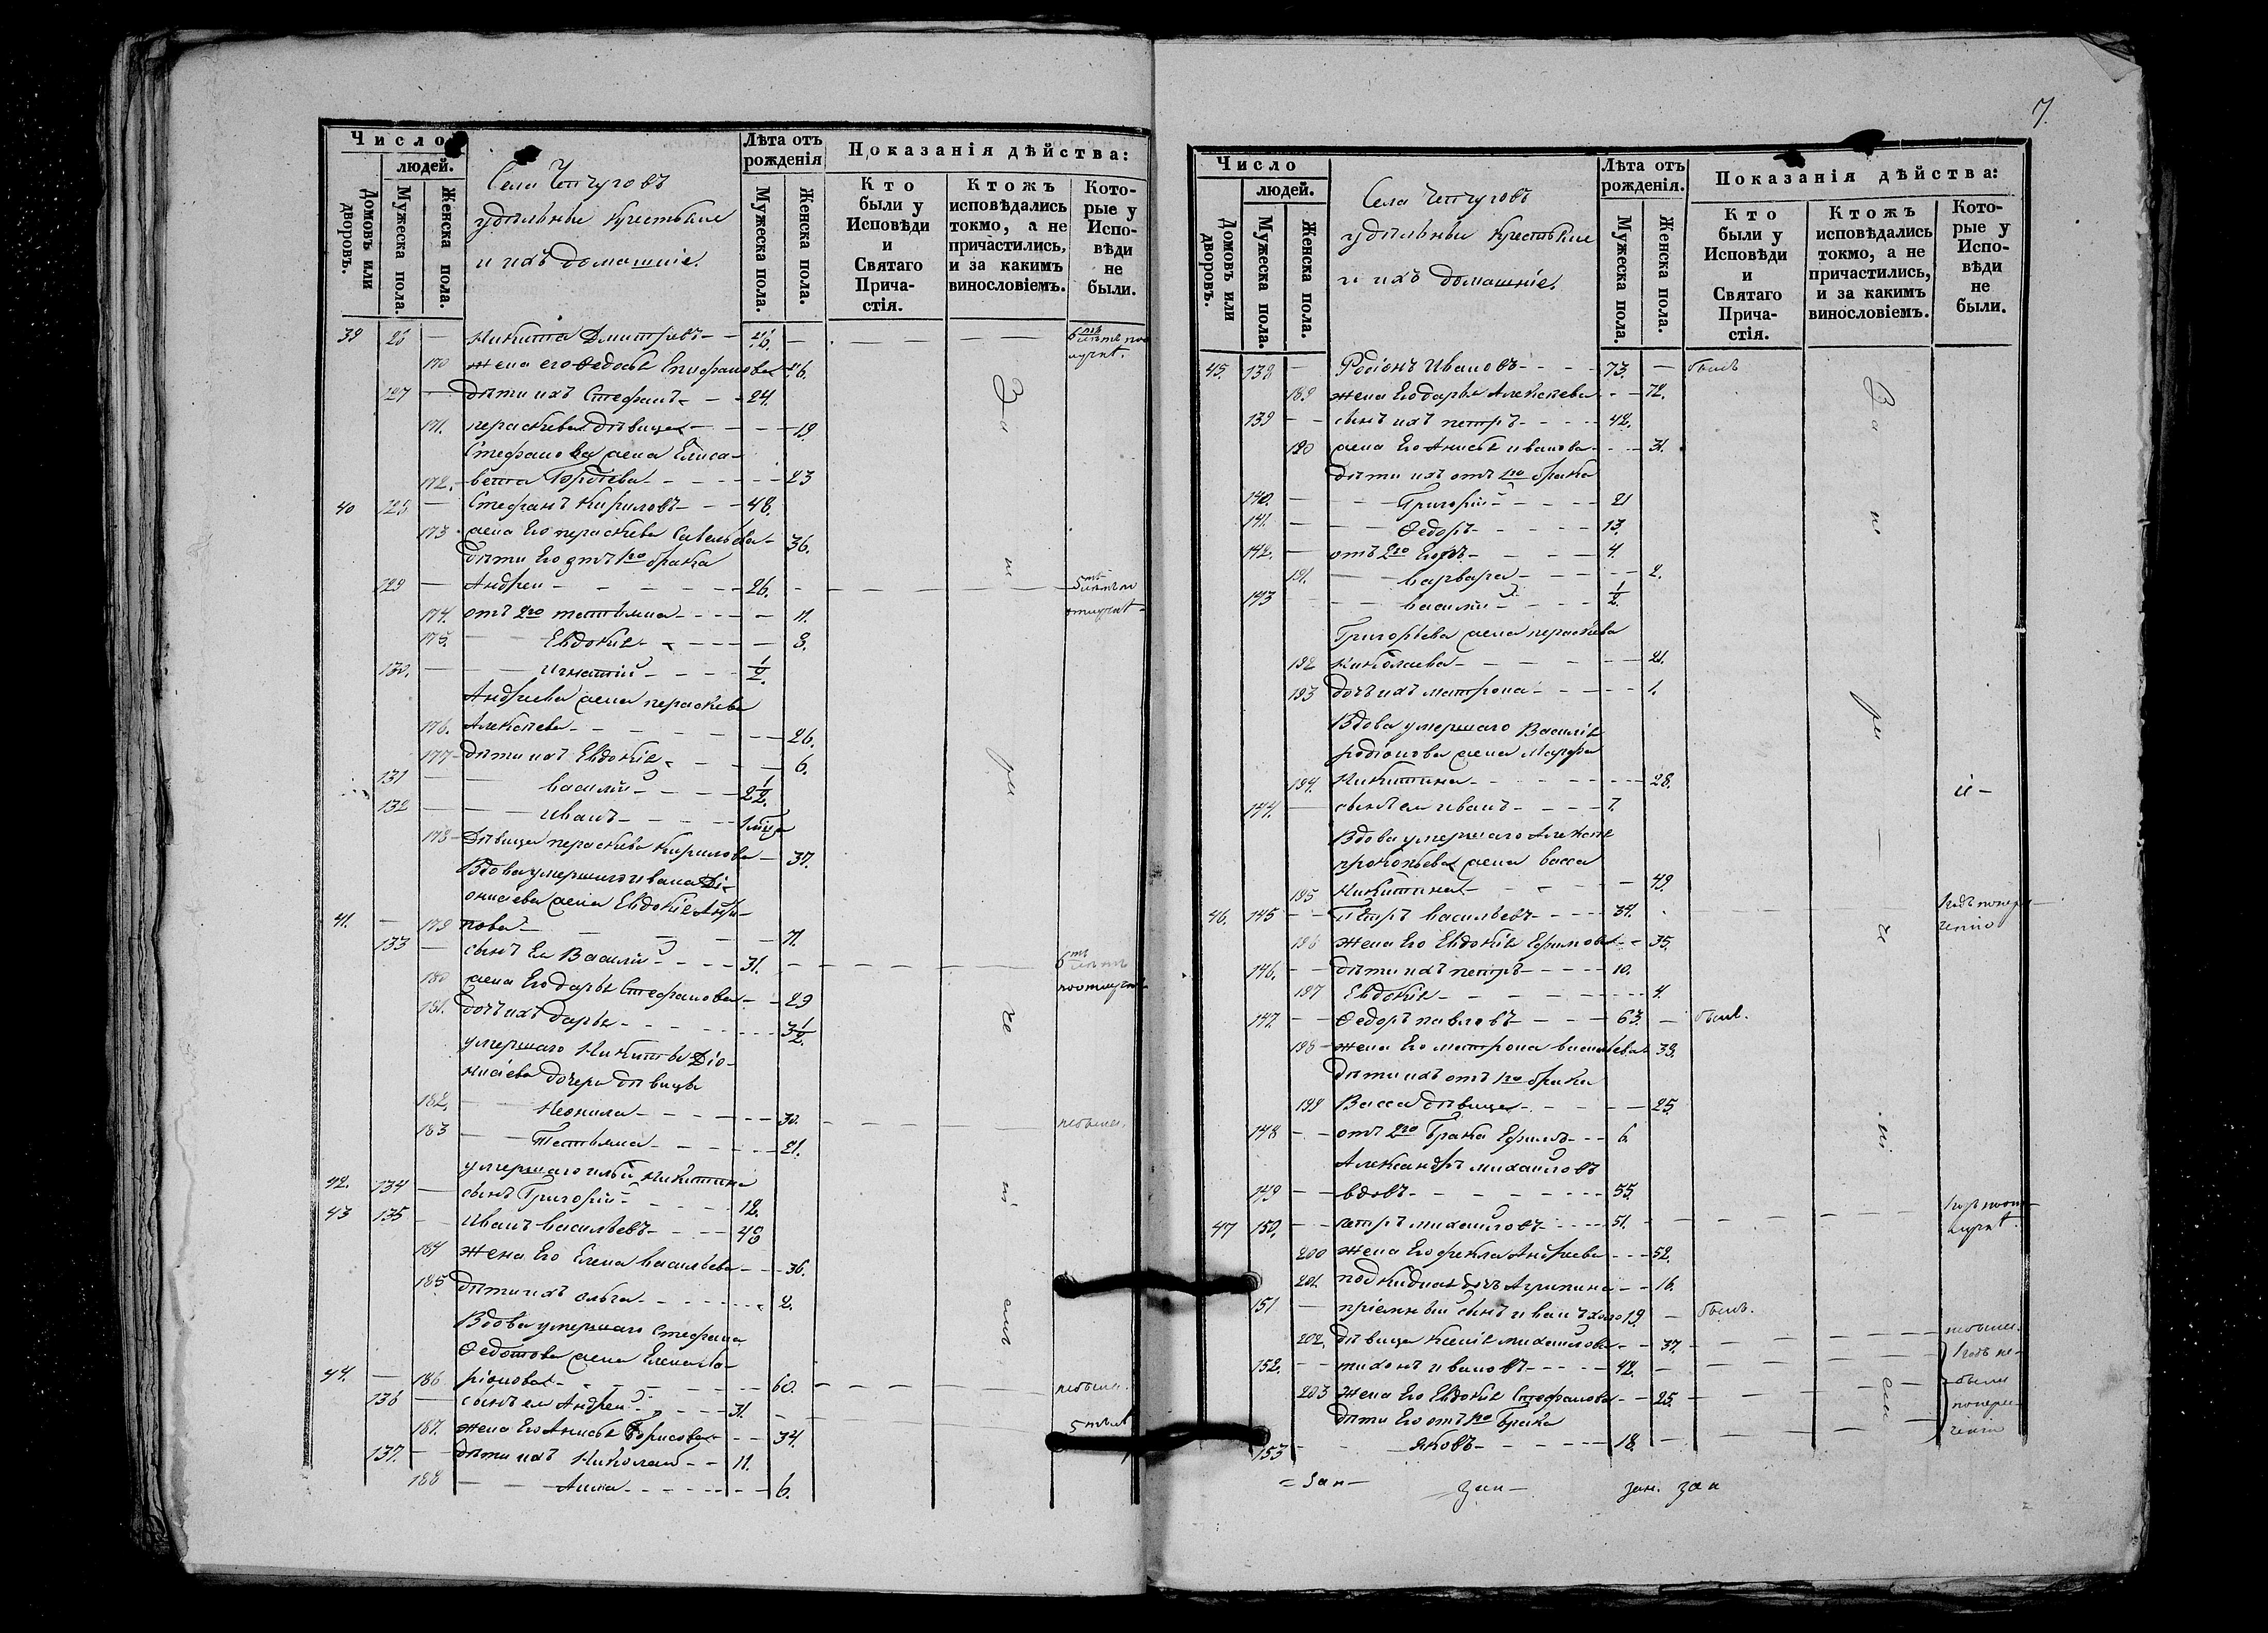 Число
людей.
Домовъ или дворовъ.
Мужеска пола.
Женска пола.
Села Чепчуговъ
удѣльные крестьяне
и ихъ домашніе.
Лѣта отъ рожденія
Мужеска пола.
Женска пола.
Показанія дѣйства:
Кто были у Исповѣди и Святаго Причастія.
Ктожъ исповѣдались токмо, а не причастились, и за какимъ винословіемъ.
Которые у Исповѣди не были.
39 Никита Дмитріевъ 46.
170 жена его Федосья 46.
127 дѣти ихъ Стефанъ 24.
171. параскева дѣвица 19
Стефанова жена Елиса-
172. вета 23
40 128 Стефанъ Кириловъ 48.
173 жена Его параскева Савельева 36.
дѣти Его отъ 1го брака
129 Андрей 26.
174. отъ 2го татьяна 11.
175. Евдокія 8.
130. игнатій 1/2.
Андреева жена параскева
176. Алексѣева 26.
177 дѣти ихъ Евдокія 6.
131 василій 2 1/2.
132 иванъ
178 Дѣвица параскева Кирилова 37.
Вдова умершаго ивана Ді-
онисіева жена Евдокія
41. 179 71.
133 сынъ Ея Василій 31.
180 жена Его дарья Стефанова 29
181. дочь ихъ дарья 3 1/2.
умершаго Никиты Діо-
нисіева дочери дѣвицы
182. Неонила 30. небыли.
183 Татьяна 21.
умершаго ильи никитина
42. 134 сынъ Григорій 12.
43 135 Иванъ васильевъ
184 жена Его Елена васильева 36.
185 дѣти ихъ ольга 2.
Вдова умершаго Стефана
Федотова жена Елена Ла-
44. 186 ріонова 60. небыли.
136 сынъ ея Андрей 31.
187. жена Его Анисья Борисова 34.
137. дѣти ихъ Николай 11.
188 Анна 6.
За не ра че ні емъ
7.
Число
людей.
Домовъ или дворовъ.
Мужеска пола.
Женска пола.
Села Чепчуговъ
удѣльные крестьяне
и ихъ домашніе.
Лѣта отъ рожденія.
Мужеска пола.
Женска пола.
Показанія дѣйства:
Кто были у Исповѣди и Святаго Причастія.
Ктожъ исповѣдались токмо, а не причастились, и за какимъ винословіемъ.
Которые у Исповѣди не были.
45. 138 Родіонъ Ивановъ 73. былъ
189 жена Его дарья Алексѣева 72.
139 сынъ ихъ петръ 42.
190 жена Его Анисья иванова 31.
дѣти ихъ отъ 1го брака
140. Григорій 21
141. Федоръ 13.
142. отъ 2го Егоръ 4.
191. варвара 2.
143 василій 1/2.
Григорьева жена параскева
192 николаева 21.
193 дочь ихъ матрона 1.
Вдова умершаго Василія
родіонова жена Марфа
194. Никитина 28.
144. сынъ ея иванъ 7.
Вдова умершаго Алексѣя
прокопьева жена васса
195 Никитина 49
46. 145 Петръ васильевъ 34.
196 жена Его Евдокія Ефимова 35.
146. дѣти ихъ петръ 10.
197 Евдокія 4.
147. Федоръ павловъ 63. былъ.
198 жена Его матрона васильева 39.
дѣти ихъ отъ 1го брака
199 Васса дѣвица 25.
148 отъ 2го брака Ефимъ 6.
Александръ михайловъ
149 вдовъ 55.
47 150. петръ михайловъ 51.
200 жена Его фекла Андреева 52.
201. подкидная дочь Агрипина 16.
151 пріемный сынъ иванъ 19. былъ.
202. дѣвица Ксенія михайлова 37. небыли.
152. тихонъ ивановъ 42.
203 жена Его Евдокія Стефанова 25.
дѣти Его отъ 1го брака
153 яковъ 18.